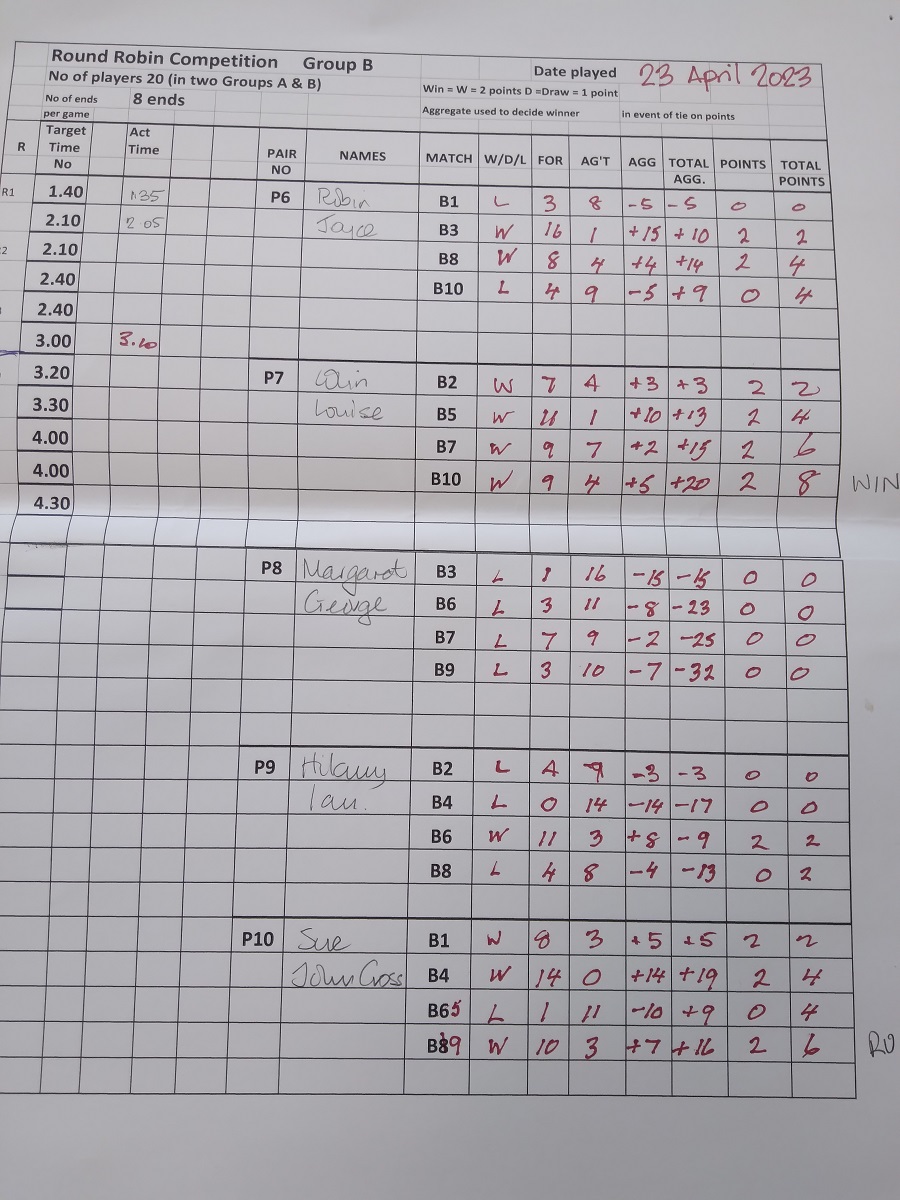 Round Robin Competition Group B
No of players 20 (in two Groups A & B) Date played 23 April 2023
No of ends per game 8 ends Win = W = 2 points D =Draw = 1 point
Aggregate used to decide winner in event of tie on points
R Target Time No Act Time PAIR NO NAMES MATCH W/D/L FOR AG'T AGG TOTAL AGG. POINTS TOTAL POINTS
R1 1.40 1.35 P6 Robin B1 L 3 8 -5 -5 0 0
2.10 2.05 Joyce B3 W 16 1 +15 +10 2 2
2 2.10 B8 W 8 4 +4 +14 2 4
2.40 B10 L 4 9 -5 +9 0 4
2.40
3.00 3.10
3.20 P7 Colin B2 W 7 4 +3 +3 2 2
3.30 Louise B5 W 11 1 +10 +13 2 4
4.00 B7 W 9 7 +2 +15 2 6
4.00 B10 W 9 4 +5 +20 2 8 WIN
4.30
P8 Margaret B3 L 1 16 -15 -15 0 0
George B6 L 3 11 -8 -23 0 0
B7 L 7 9 -2 -25 0 0
B9 L 3 10 -7 -32 0 0
P9 Hilary B2 L 4 -3 -3 0 0
Ian. B4 L 0 14 -14 -17 0 0
B6 W 11 3 +8 -9 2 2
B8 L 4 8 -4 -13 0 2
P10 Sue B1 W 8 3 +5 +5 2 2
John Cross B4 W 14 0 +14 +19 2 4
B65 L 1 11 -10 +9 0 4
B89 W 10 3 +7 +16 2 6 RU